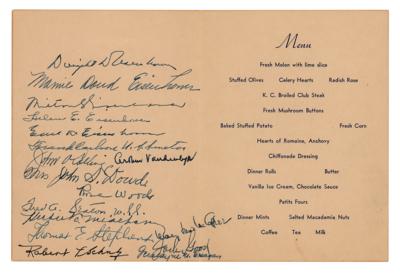 Dwight D Eisenhower
Mamie Doud Eisenhower
Milton Eisenhower
Helen E. Eisenhower
Earl D Eisenhower
John
Arthur Vandenberg
Mrs John S. Doud
Rose Woods
Fred A. Seaton
Thomas E. Stephens
Robert L Schulz
Menu
Fresh Melon with lime slice
Stuffed Olives Celery Hearts Radish Rose
K. C. Broiled Club Steak
Fresh Mushroom Buttons
Baked Stuffed Potato Fresh Corn
Hearts of Romaine, Anchovy
Chiffonade Dressing
Dinner Rolls Butter
Vanilla Ice Cream, Chocolate Sauce
Petits Fours
Dinner Mints Salted Macadamia Nuts
Coffee Tea Milk